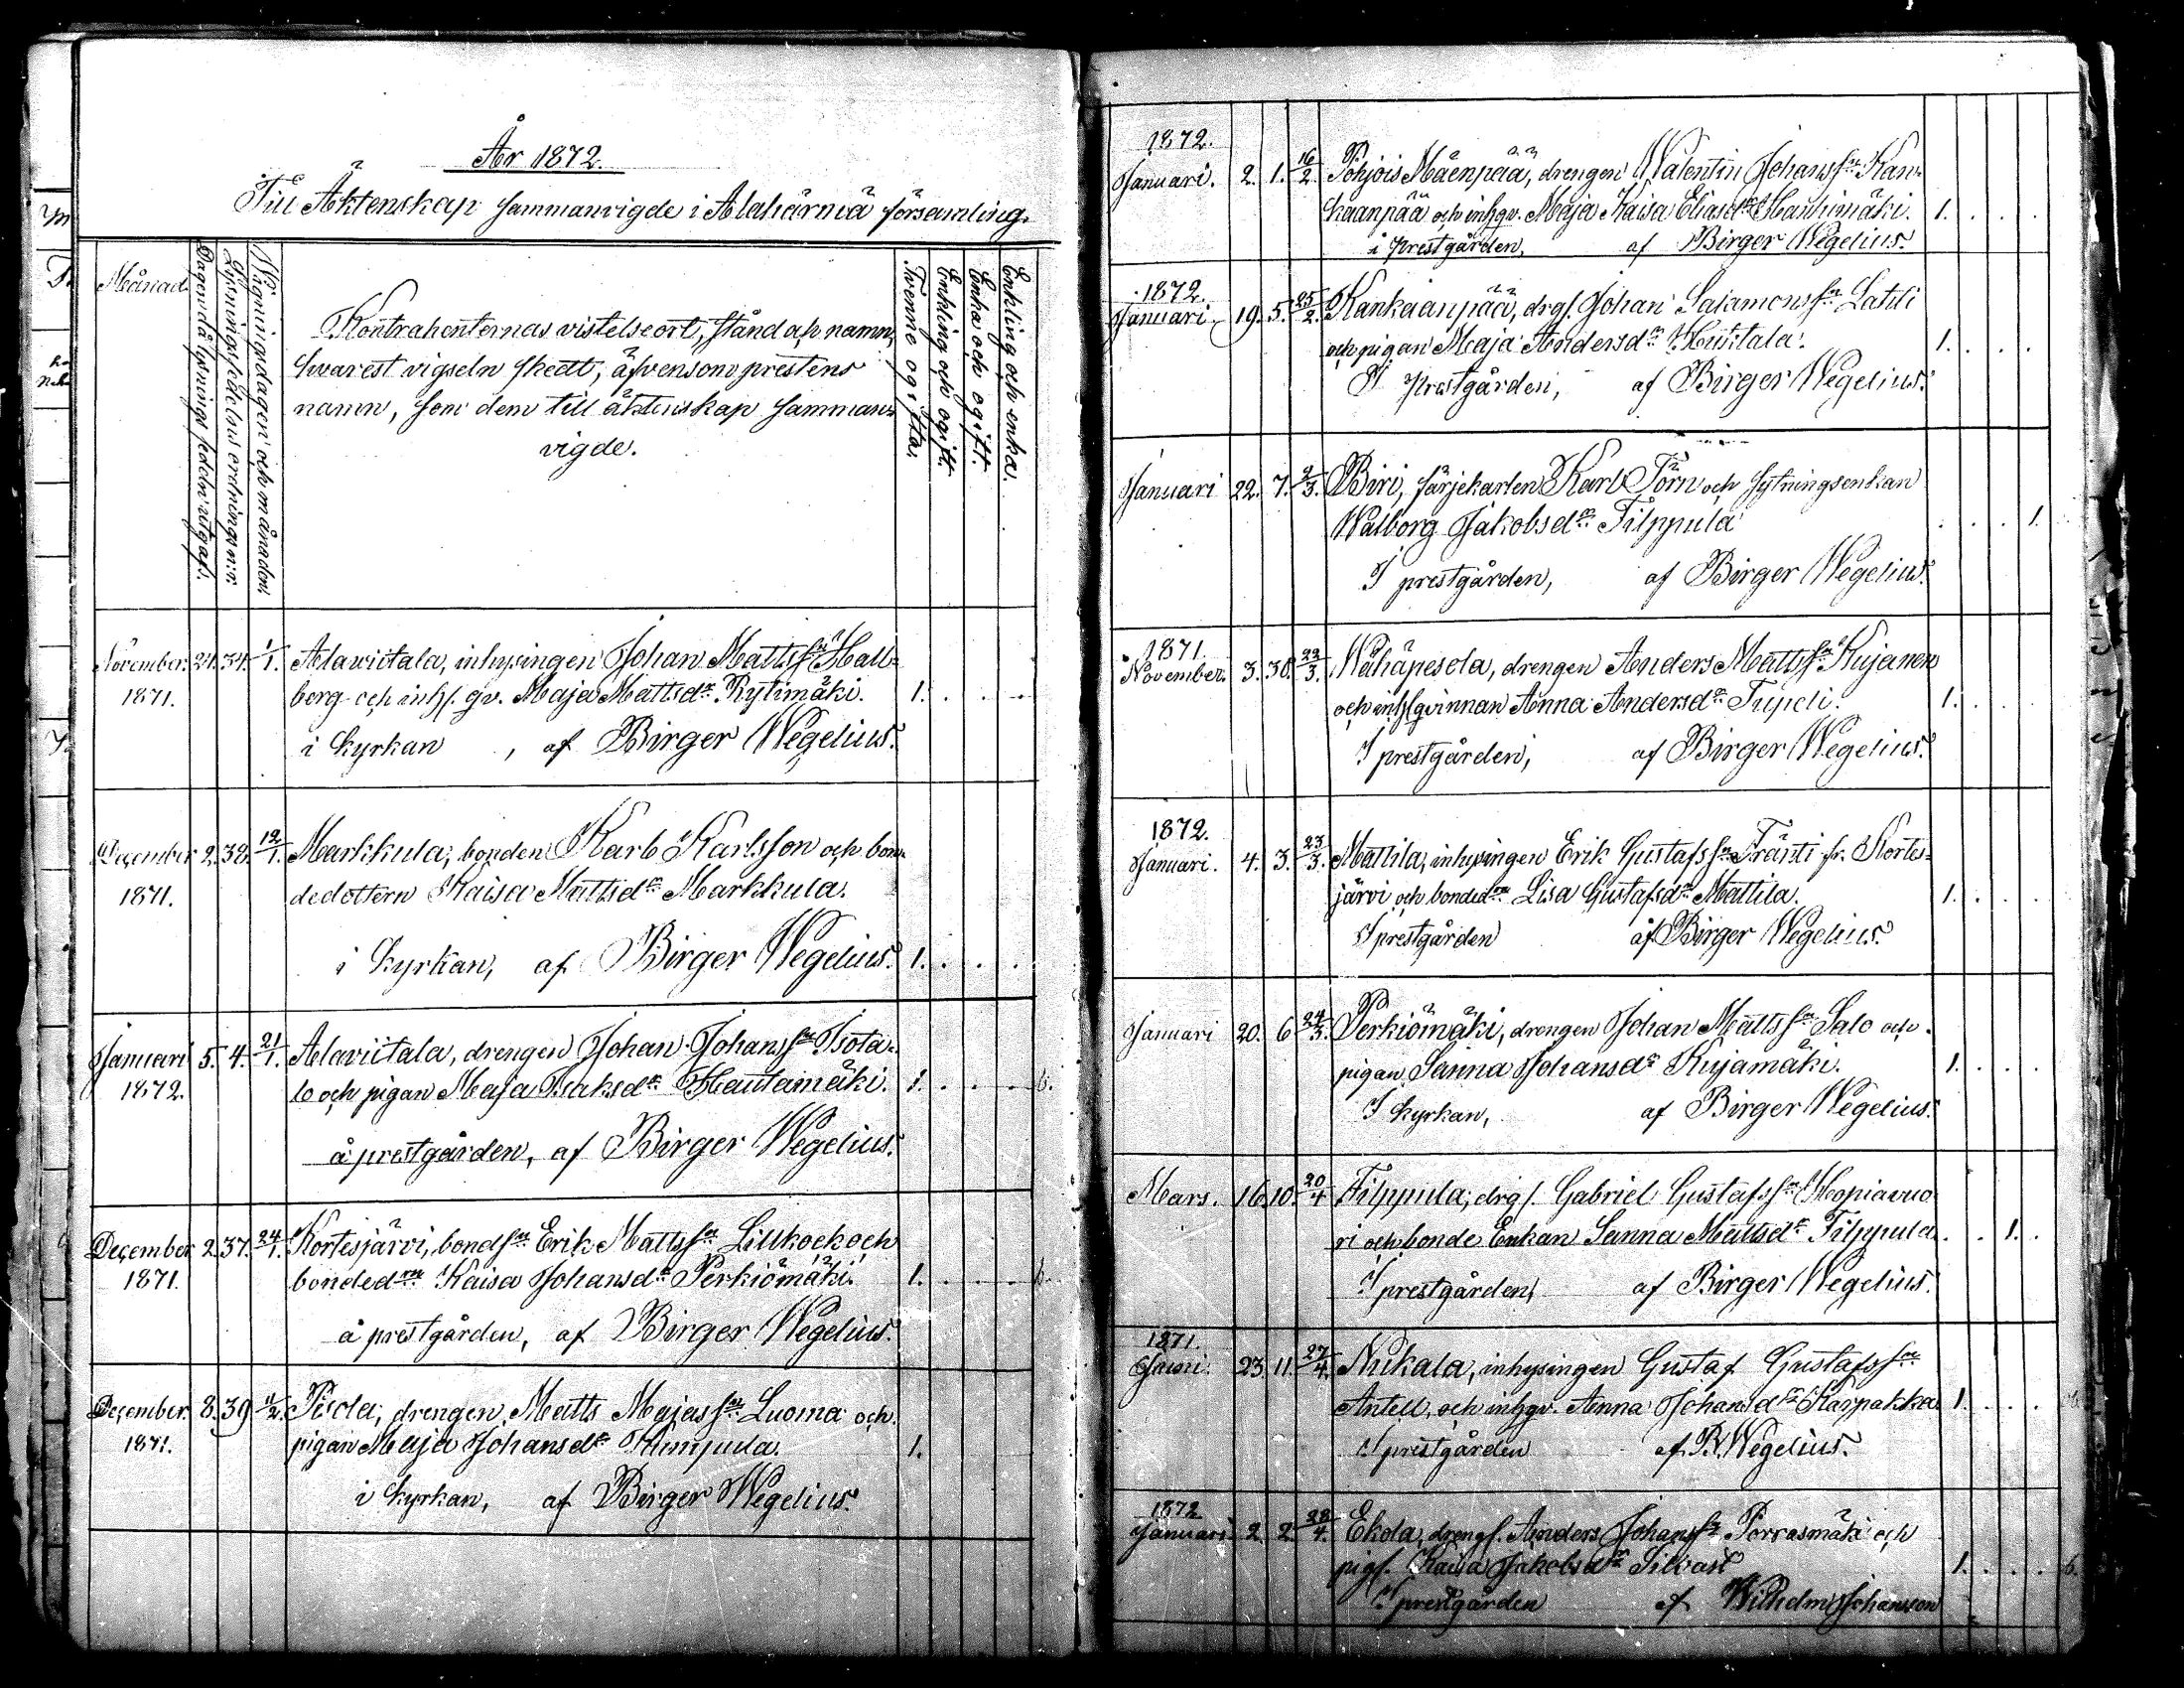 År 1872.
Till Äktenskap sammanvigde i Alahärmä församling.
Månad.
Dagen då lysnings sedeln utgafs.
Lysningssedelns ordnings n:r
Vigningsdagen och månaden.
Kontrahenternas vistelseort, stånd och namn,
hvarest vigseln skedt, äfvensom prestens
namn, som dem till äktenskap samman-
vigde.
Tvenne ogifta.
Enkling och ogift.
Enka och ogift.
Enkling och enka.
November. 24. 34. 1/1. Alaviitala, inhysingen Johan Mattss:n Hall-
1871. berg och inhs. qv. Maja Mattsd:r Rytimäki. 1.
i kyrkan, af Birger Wegelius.
December 2. 38. 12/1. Markkula, bonden Karl Karlsson och bon-
1871. dedottern Kaisa Mattsd:r Markkula.
i kyrkan, af Birger Wegelius. 1.
Januari 5. 4. 21/1. Alaviitala, drengen Johan Johanss:n Isota-
1872. lo och pigan Maja Isaksd:r Hautamäki. 1.
å prestgården, af Birger Wegelius.
December 2. 37. 24/1. Kortesjärvi, bonds:n Erik Mattss:n Lillkock och
1871. bonded:rn Kaisa Johansd:r Perkiömäki. 1.
å prestgården, af Birger Wegelius.
December. 8. 39 11/2. Piida, drengen Matts Majass:n Luoma och
1871. pigan Maja Johansd:r Kumpula. 1.
i kyrkan, af Birger Wegelius.
1872.
Januari. 2. 1. 16/2. Pohjois Mäenpää, drengen Walentin Johanss:n Kan-
kaanpää och inhqv. Maja Kaisa Eliasd:r Hanhimäki. 1.
i prestgården, af Birger Wegelius.
1872.
Januari. 19. 5. 25/2. Kankaanpää, drgs. Johan Salamonss:n Lahti
och pigan Maja Andersd:r Huktala. 1.
I prestgården, af Birger Wegelius.
Januari 22. 7. 2/3. Biri, färjekarlen Karl Törn och sytningsenkan
Walborg Jakobsd:r Filppula 1.
I prestgården, af Birger Wegelius.
1871.
November. 3. 30. 22/3. Wähäpesola, drengen Anders Mattss:n Kujanen
och inhsqvinnan Anna Andersd:r Tupeli. 1.
I prestgården, af Birger Wegelius.
1872.
Januari. 4. 3. 23/3. Mattila, inhysingen Erik Gustafss:n Fränti fr. Kortes-
järvi och bonded:rn Lisa Gustafsd:r Mattila. 1.
I prestgården af Birger Wegelius.
Januari 20. 6 24/3. Perkiömäki, drengen Johan Mattss:n Salo och
pigan Sanna Johansd:r Kujamäki. 1.
I kyrkan, af Birger Wegelius.
Mars. 16. 10. 20/4 Filppula, drgs. Gabriel Gustafss:n Hopiavuo-
ri och bonde Enkan Sanna Mattsd:r Filppula. 1.
I prestgården, af Birger Wegelius.
1871.
Juni. 23. 11. 27/4. Nikala, inhysingen Gustaf Gustafss:n
Antell, och inhqv. Anna Johansd:r Karpakka 1.
I prestgården af B. Wegelius.
1872
Januari 2. 2. 28/4. Ekola, drengs. Anders Johanss:n Porrasmäki och
pigs. Kaisa Jakobsd:r Silvast 1.
I prestgården af Wilhelm Johansson